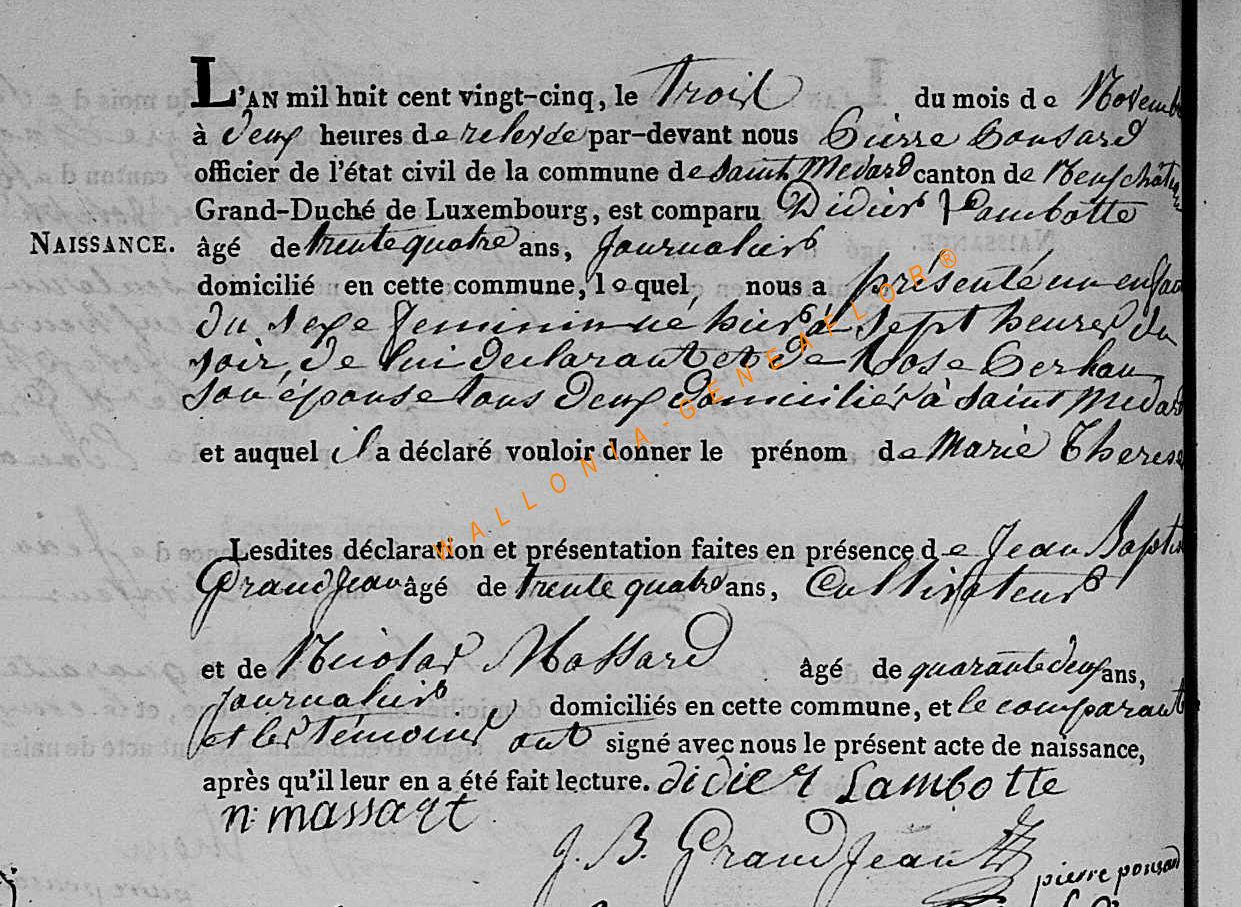 L'AN mil huit cent vingt-cinq, le trois du mois de Novemb
à deux heures de relevée par-devant nous Pierre Ponsard
officier de l'état civil de la commune de Saint Medard canton de Neufchâte
Grand-Duché de Luxembourg, est comparu Didier Lambotte
NAISSANCE. âgé de trente quatre ans, Journalier
domicilié en cette commune, lequel, nous a présenté un enfan
du sexe feminin né hier à sept heures du
soir, de lui declarant et de Rose
son épouse tous deux domiciliés à Saint Medar
et auquel il a déclaré vouloir donner le prénom de Marie Therese
Lesdites déclaration et présentation faites en présence de Jean Baptis
Grandjean âgé de trente quatre ans, Cultivateur
et de Nicolas Massard âgé de quarante deux ans,
journalier domiciliés en cette commune, et le comparant
et les témoins ont signé avec nous le présent acte de naissance,
après qu'il leur en a été fait lecture. didier Lambotte
n: massart
J. B. Grand Jean
pierre ponsard
WALLONIA-GENEALOB®